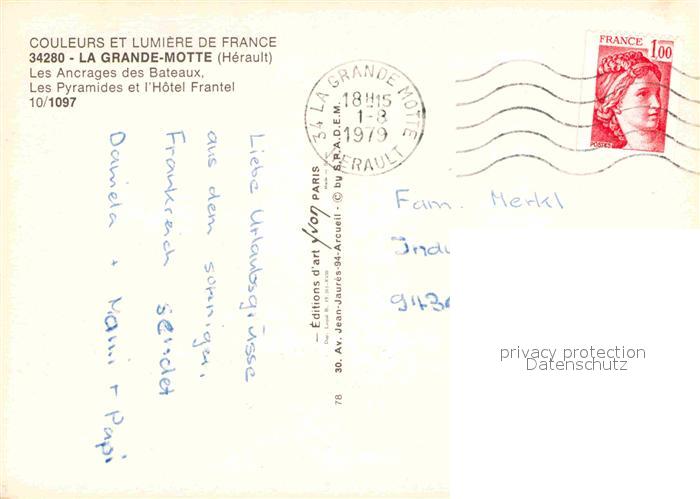 COULEURS ET LUMIÈRE DE FRANCE
34280 - LA GRANDE-MOTTE (Hérault)
Les Ancrages des Bateaux,
Les Pyramides et l'Hôtel Frantel
10/1097
Liebe Urlaubsgrüsse
aus dem sonnigen,
Frankreich sendet
Daniela + Mami + Papi
34 LA GRANDE MOTTE
18H15
1-8
1979
HERAULT
FRANCE
1,00
POSTES
— Éditions d'art yvon PARIS
30. Av. Jean-Jaurès-94-Arcueil - © by S.P.A.D.E.M.
78
Fam. Merkl
privacy protection
Datenschutz